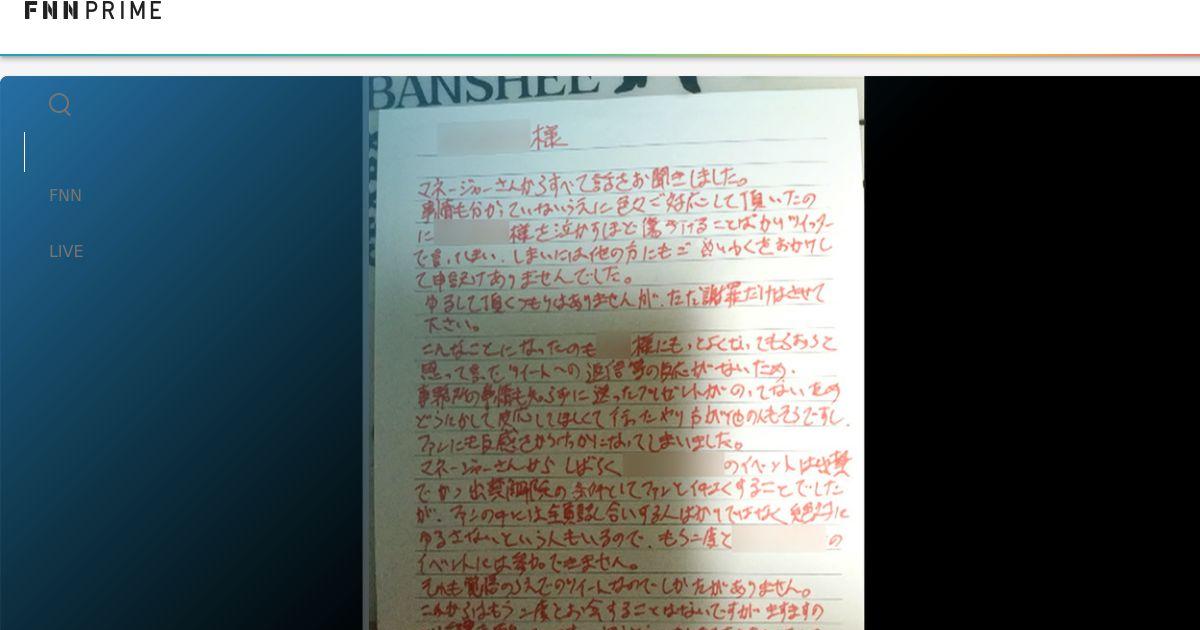 FNN PRIME
FNN
LIVE
BANSHEE
様
マネージャーさんからすべて話をお聞きしました。
事情も分かっていないうえに色々ご対応して頂いたの
に 様を泣かすほど傷つけることばかりツイッター
で言ってしまい、しまいには他の方にもご めいわくをおかけし
て申し訳ありませんでした。
ゆるして頂くつもりはありませんが、ただ謝罪だけはさせて
下さい。
こんなことになったのも 様にもっとよくなってもらおうと
思って書いたツイートへの返信等の反応がないため、
事務所の事情も知らずに送ったプレゼントがのってないため
どうにかして反応してほしくて行ったやり方が他の人もそうですし、
ファンにも反感をかうけっかになってしまいました。
マネージャーさんから しばらく のイベントは出禁
でかつ出禁解除の条件としてファンと仲良くすることでした
が、ファンの中には全員話し合いする人ばかりではなく 絶対に
ゆるさないという人もいるので、もう二度と の
イベントには参加できません。
それも覚悟のうえでのツイートなのでしかたがありません。
これからはもう二度とお会することはないですが ますますの